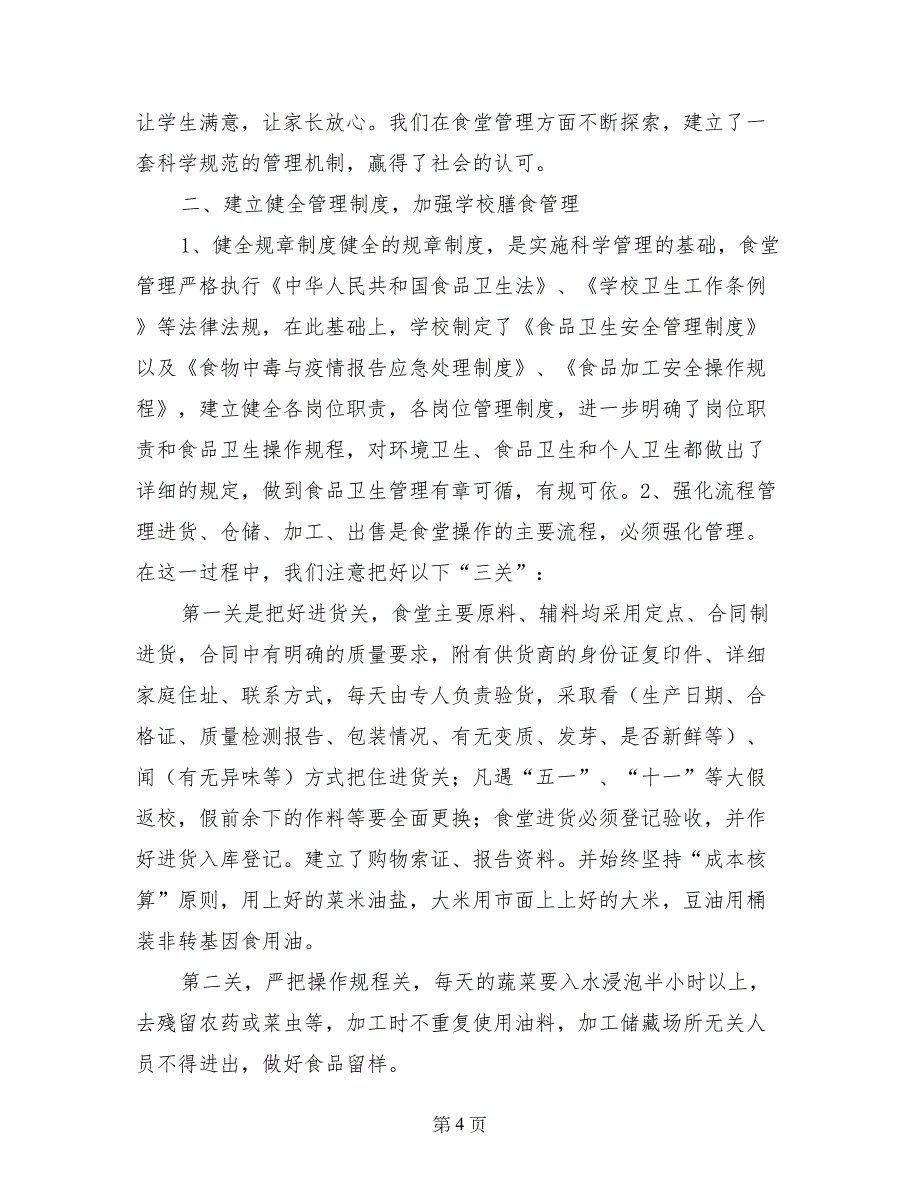 让学生满意，让家长放心。我们在食堂管理方面不断探索，建立了一
套科学规范的管理机制，赢得了社会的认可。
二、建立健全管理制度，加强学校膳食管理
1、健全规章制度健全的规章制度，是实施科学管理的基础，食堂
管理严格执行《中华人民共和国食品卫生法》、《学校卫生工作条例
》等法律法规，在此基础上，学校制定了《食品卫生安全管理制度》
以及《食物中毒与疫情报告应急处理制度》、《食品加工安全操作规
程》，建立健全各岗位职责，各岗位管理制度，进一步明确了岗位职
责和食品卫生操作规程，对环境卫生、食品卫生和个人卫生都做出了
详细的规定，做到食品卫生管理有章可循，有规可依。2、强化流程管
理进货、仓储、加工、出售是食堂操作的主要流程，必须强化管理。
在这一过程中，我们注意把好以下“三关”：
第一关是把好进货关，食堂主要原料、辅料均采用定点、合同制
进货，合同中有明确的质量要求，附有供货商的身份证复印件、详细
家庭住址、联系方式，每天由专人负责验货，采取看（生产日期、合
格证、质量检测报告、包装情况、有无变质、发芽、是否新鲜等）、
闻（有无异味等）方式把住进货关；凡遇“五一”、“十一”等大假
返校，假前余下的作料等要全面更换；食堂进货必须登记验收，并作
好进货入库登记。建立了购物索证、报告资料。并始终坚持“成本核
算”原则，用上好的菜米油盐，大米用市面上上好的大米，豆油用桶
装非转基因食用油。
第二关，严把操作规程关，每天的蔬菜要入水浸泡半小时以上，
去殘留农药或菜虫等，加工时不重复使用油料，加工储藏场所无关人
员不得进出，做好食品留样。
第 4 页